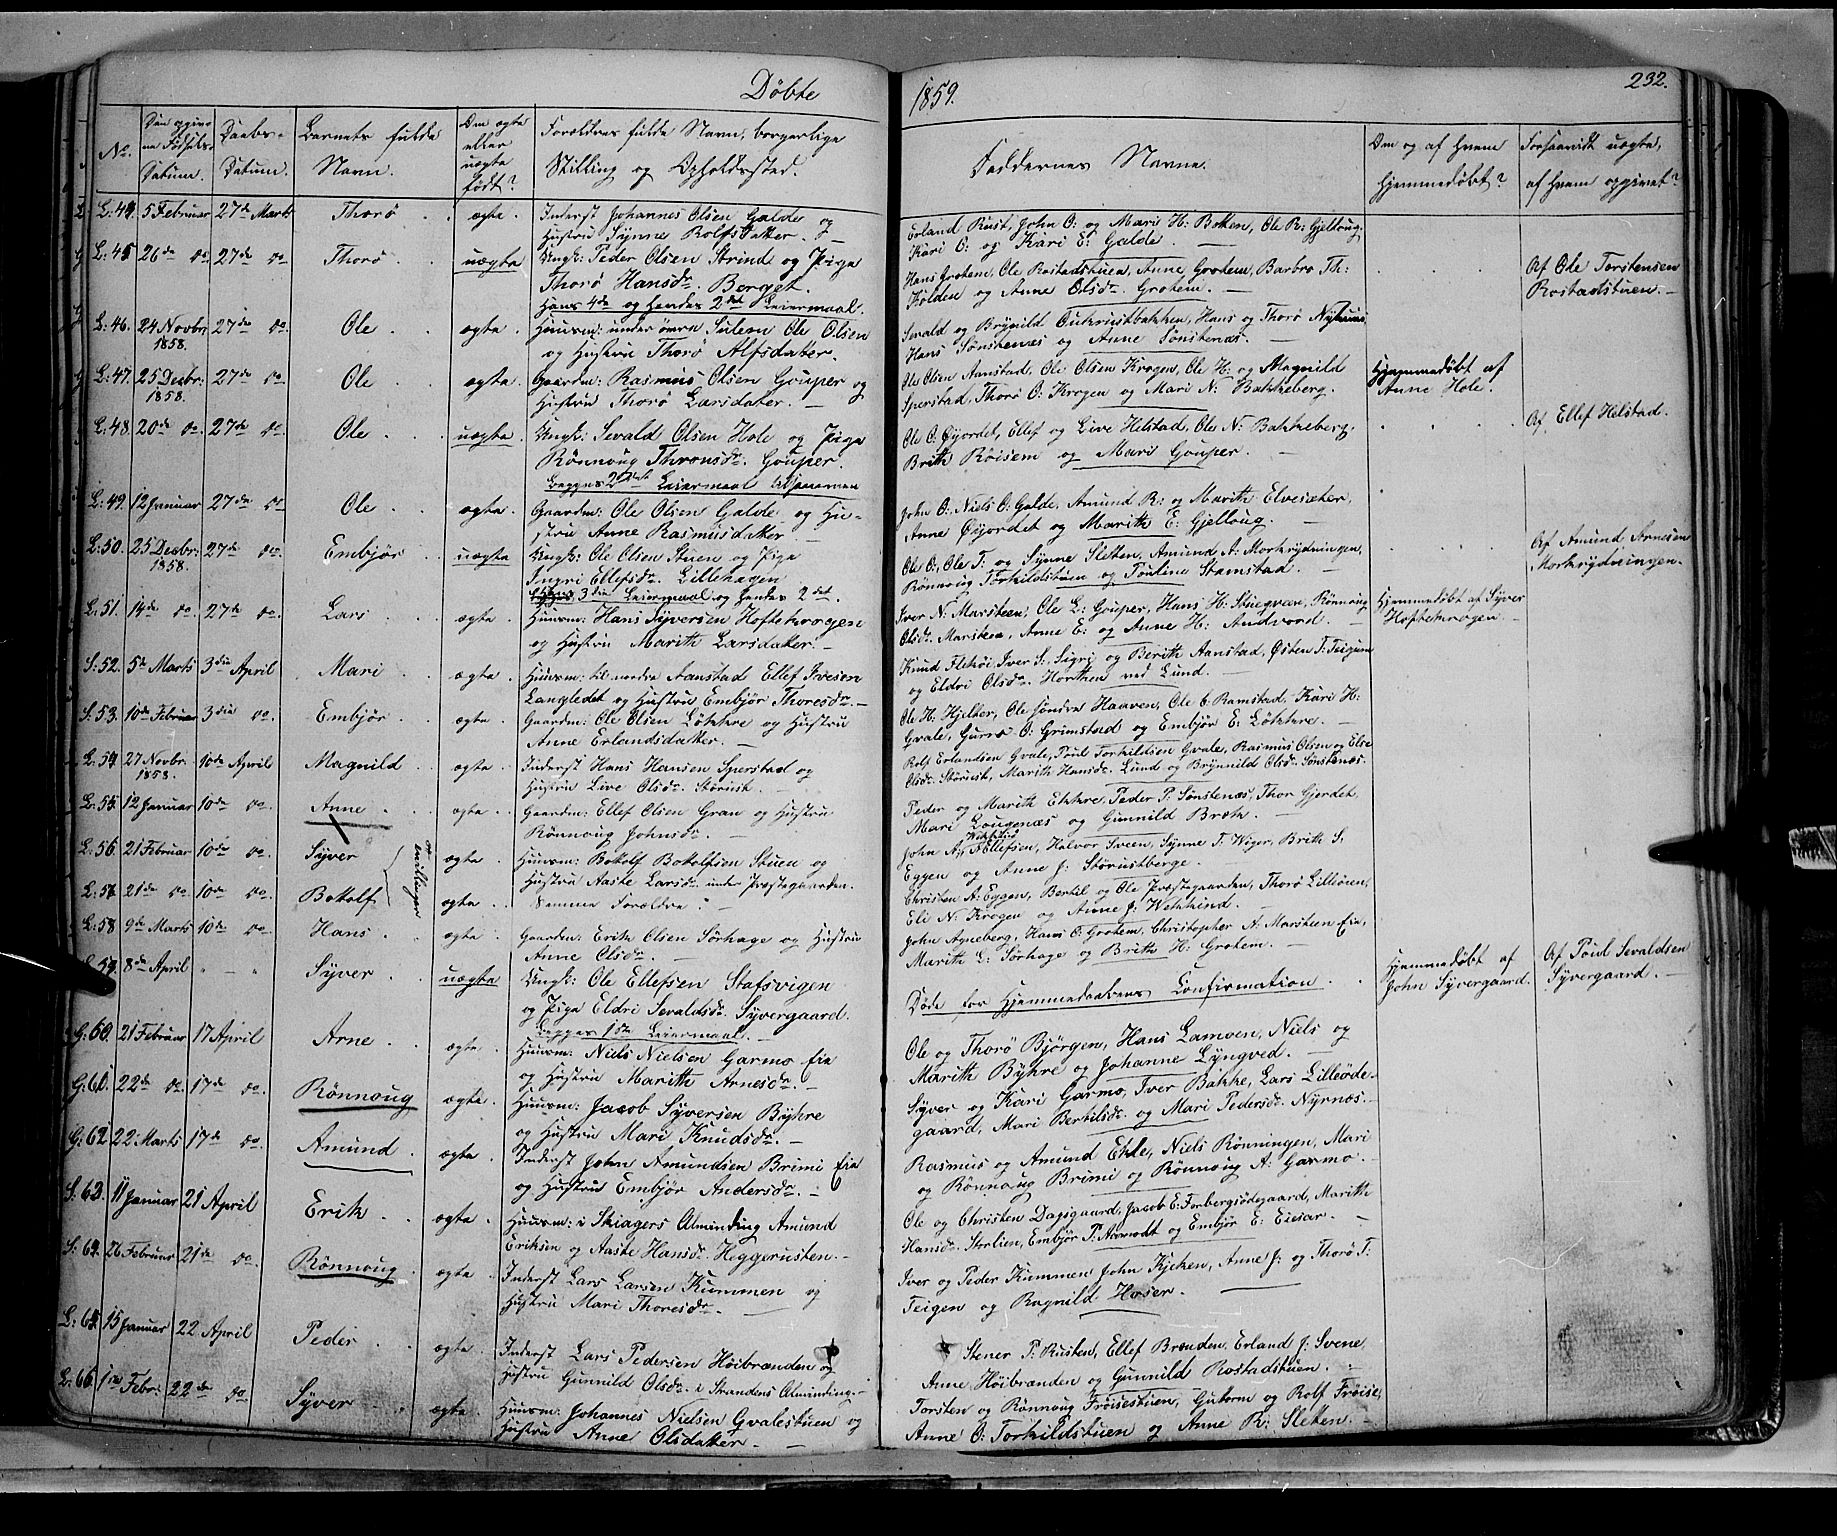 Døbte 1859. 232.
No. Den opgivne Fødsels-Datum. Daabs-Datum. Barnets fulde Navn. Om ægte eller uægte født? Forældres fulde Navn, borgerlige Stilling og Opholdssted. Faddernes Navne. Om og af hvem hjemmedøbt? Forsaavidt uægte, af hvem opgivet?
L: 44. 5 Februar 27de Marts Thorø ægte. Inderst Johannes Olsen Galde og
Hustru Synne Rolfsdatter.
Erland Rust, John O: og Mari H: Bakken, Ole R: Gjelloug,
Kari O: og Kari E: Galde.
L: 45 26de do 27de do Thorø uægte Ungk: Peder Olsen Strind og Pige
Thorø Hansdr. Berget.
Hans 4de og hendes 2det Leiermaal.
Hans Grotem, Ole Rostadstuen, Anne Grotem, Barbro Th:
Kolden og Anne Olsdr. Grotem.
Af Ole Torstensen
Rostadstuen.
L: 46. 24 Novbr 1858. 27de do Ole ægte. Huusm: under övre Sulem Ole Olsen
og Hustru Thorø Alfsdatter.
Sevald og Brynild Ouhrustbakken, Hans og Thorø Nyhuus
Hans Sønstenæs og Anne Sønstenæs.
L: 47. 25 Decbr: 1858. 27de do Ole ægte. Gaardm: Rasmus Olsen Gouper og
Hustru Thorø Larsdatter.
Ole Olsen Aanstad, Ole Olsen Krogen, Ole H: og Magnild
Sperstad, Thorø O: Krogen og Mari N: Bakkeberg.
Hjemmedøbt af
Anne Hole.
L: 48. 20de do. 27de do. Ole uægte. Ungk: Sevald Olsen Hole og Pige
Rønnoug Thronsdr. Gouper.
Begges 2det Leiermaal
Ole O: Øyordet, Ellef og Live Helstad, Ole N: Bakkeberg,
Brith Røisem og Mari Gouper.
Af Ellef Helstad.
L: 49. 12 Januar 27de do Ole ægte. Gaardm: Ole Olsen Galde og Hu-
stru Anne Rasmusdatter
John O: Niels O: Galde, Amund R: og Marith Elvesæter,
Anne Øyordet og Marith E: Gjelloug.
L: 50. 25 Decbr: 1858. 27de do. Embjør uægte Ungk: Ole Olsen Stuen og Pige
Ingri Ellefsdr. Lillehagen
3die Leiermaal og hendes 2det.
Ole O:, Ole T: og Synne Sletten, Amund A: Morkrydningen,
Rønnoug Torkildstuen og Pouline Stamstad.
Af Amund Arnesen
Morkrydningen.
L: 51. 14de do. 27de do. Lars ægte. Huusm: Hans Syversen Hoftekrogen
og Hustru Marith Larsdatter.
Iver N: Marsteen, Ole L: Gouper, Hans H: Stuegveen, Rønnoug
Olsdr. Marsteen, Anne E: og Anne H: Andvord.
Hjemmedøbt af Syver
Hoftekrogen
S: 52. 5te Marts 3die April Mari ægte. Huusm: til nordre Aanstad Ellef Iversen
Langledet og Hustru Embjør Thoresdr.
Knud Flekøi, Iver S:, Sigri og Berith Aanstad, Østen T: Teigum
og Eldri Olsdr. Horthen ved Lund.
S: 53. 10de Februar 3die do. Embjør ægte. Gaardm: Ole Olsen Løkkre og Hustru
Anne Erlandsdatter.
Ole H: Hjelter, Ole søndre Haaven, Ole C: Ramstad, Kari H:
Gvale, Gurro O: Grimstad og Embjør E: Løkkre.
L: 54 27 Novbr. 1858. 10de April Magnild ægte. Inderst Hans Hansen Sperstad og
Hustru Live Olsdr. Størust.
Rolf Erlandsen Gvale, Poul Torkildsen Gvale, Rasmus Olsen og Else
Olsdr. Størust, Marith Hansdr. Lund og Brynnild Olsdr. Sønstenæs.
L: 55 12 Januar 10de do. Anne ægte. Gaardm: Ellef Olsen Gran og Hustru
Rønnoug Johnsdr.
Peder og Marith Ekkre, Peder P: Sønstenæs, Thor Gjerdet,
Mari Lougenæs og Gunnild Bræk.
L: 56. 21 Februar 10de do. Syver Tvillinger ægte. Huusm: Botolf Botolfsen Stuen og
Hustru Aaste Larsdr. under Præstegaarden.
John A: Ellefsen, Halvor Sveen, Synne T: Wiger, Brith S.
Eggen og Anne J: Størustberge.
L: 57. 21de do 10de do. Botolf ægte. Samme Forældre.
Christen A: Eggen, Bertil og Ole Præstegaarden, Thorø Lilleøien,
Eli N: Krogen og Anne J: Wekkind.
L: 58 9de Marts 10de do. Hans ægte. Gaardm: Erik Olsen Sørhage og Hustru
Anne Olsdr.
John Agneberg, Hans O: Grotem, Christopher A: Marsteen Eie,
Marith L: Sørhage og Brith H: Grotem.
L: 59. 8de April " - " Syver uægte Ungk: Ole Ellefsen Stafsvigen
og Pige Eldri Sevaldsdr. Syvergaard.
Begges 1ste Leiermaal.
Døde før Hjemmedaabens Confirmation.
Hjemmedøbt af
John Syvergaard.
Af Poul Sevaldsen
Syvergaard.
G: 60. 21 Februar 17 April Arne ægte. Huusm: Niels Nielsen Garmo Eie
og Hustru Marith Arnesdr.
Ole og Thorø Bjørgen, Hans Lamoen, Niels og
Marith Bykre og Johanne Lyngved.
G: 61. 22de do 17de do. Rønnoug ægte. Huusm: Jacob Syversen Bykre
og Hustru Mari Knudsdr.
Syver og Kari Garmo, Iver Bakke, Lars Lilleøde-
gaard, Mari Bertilsdr. og Mari Pedersdr. Nyrnæs.
G: 62 22 Marts 17de do. Amund ægte. Inderst John Amundsen Brimi Eie
og Hustru Embjør Andersdr.
Rasmus og Amund Ekle, Niels Rønningen, Mari
og Rønnoug Brimi og Rønnoug A: Garmo.
S: 63. 11 Januar 21 April Erik ægte. Huusm: i Skiagers Alminding Amund
Eriksen og Aaste Hansdr. Heggerusten.
Ole og Christen Dagsgaard, Jacob E: Forbergsødegaard, Marith
Hansdr. Storlien, Embjør P: Aamodt og Embjør E: Eiesar.
S: 64. 26 Februar 21de do. Rønnoug ægte. Inderst Lars Larsen Kummen og
Hustru Mari Thoresdr.
Iver og Peder Kummen, John Kjeken, Anne J: og Thorø T:
Teigen og Ragnild Hoser.
L: 65. 15 Januar 22 April Peder ægte. Inderst Lars Pedersen Høibrænden og
Hustru Gunnild Olsdr. i Strandens Alminding.
Stener P: Rusten, Ellef Brænden, Erland J: Svene,
Anne Høibrænden og Gunnild Rostadstuen.
L: 66. 1ste Febr: 22de do. Syver ægte. Huusm: Johannes Nielsen Gvalestuen og
Hustru Anne Olsdatter.
Torsten og Rønnoug Frøisestuen, Gutorm og Rolf Frøise,
Anne O: Torkildstuen og Anne R: Sletten.